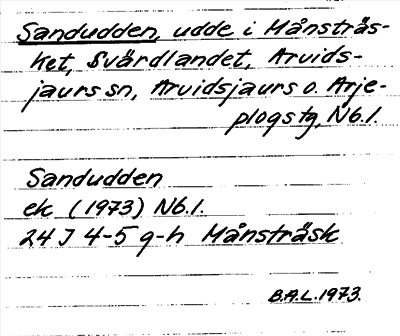 Sandudden, udde i Månsträs-
ket, Svärdlandet, Arvids-
jaurs sn, Arvidsjaurs o. Arje-
plogs tg, Nb.l.
Sandudden
ek (1973) Nb.l.
24 J 4-5 g-h Månsträsk
B.A.L. 1973.